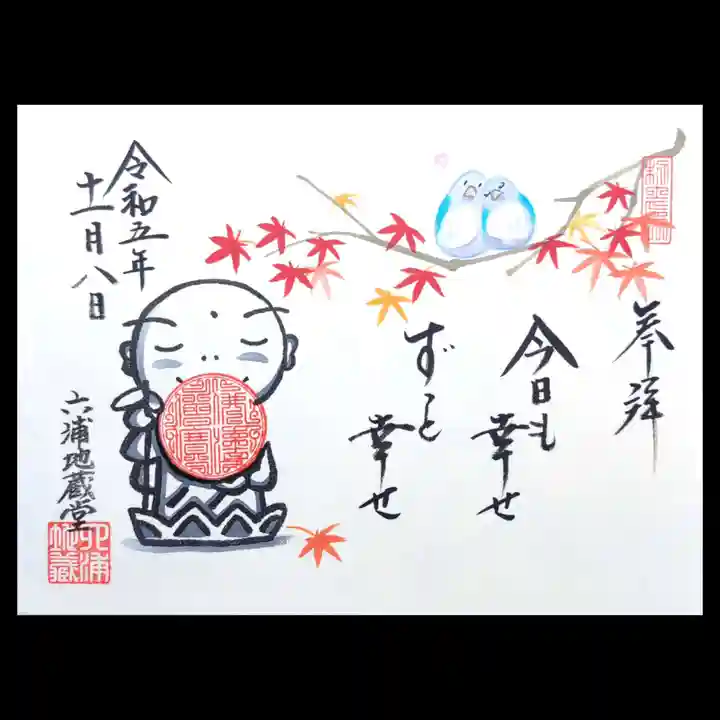 奉拝
今日も幸せ
ずっと幸せ
令和五年
十一月八日
六浦地蔵堂
六浦地蔵